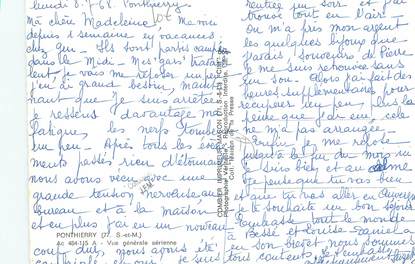 lundi 8-7-68. Ponthierry
Ma chère Madeleine. Me voici
depuis 1 semaine en vacances
chez qu. Ils sont partis samedi
dans le midi. Mes gars travail-
lent, je vais me reposer un peu
j'en ai grand besoin, mainte-
nant que je suis arrêtée
je ressens davantage ma
fatigue, les nerfs tombent
un peu. Après tous les évène-
ments passés rien d'étonnant
nous avons vécu avec une
grande tension nerveuse au
bureau et à la maison
et en plus j'ai eu un nouveau
coup dur, nous avons été
PONTHIERRY (77. S.-et-M.)
Ac 404-115 A - Vue générale aérienne
COMBIER IMPRIMEUR MACON (71. S.-&-L.) "CIM"
Photographie Véritable - Reproduction Interdite
Coll. Maison de la Presse
rentrée un soir. et j'ai
trouvé tout en l'air.
On m'a pris mon argent
les quelques bijoux que
j'avais, souvenirs de Pierre
je me suis retrouvée sans
un sou. Alors j'ai fait des
heures supplémentaires pour
récupérer un peu, plus la
peine que j'ai eue, cela
ne m'a pas arrangée.
Enfin, je me repose
jusqu'à la fin du mois
je suis bien et au calme
Je pense que tu vas bien
et que tu vas aller en
je te souhaite un bon
tout le monde
et Louise Daniel
en son bienet nous sommes
je suis tous contents